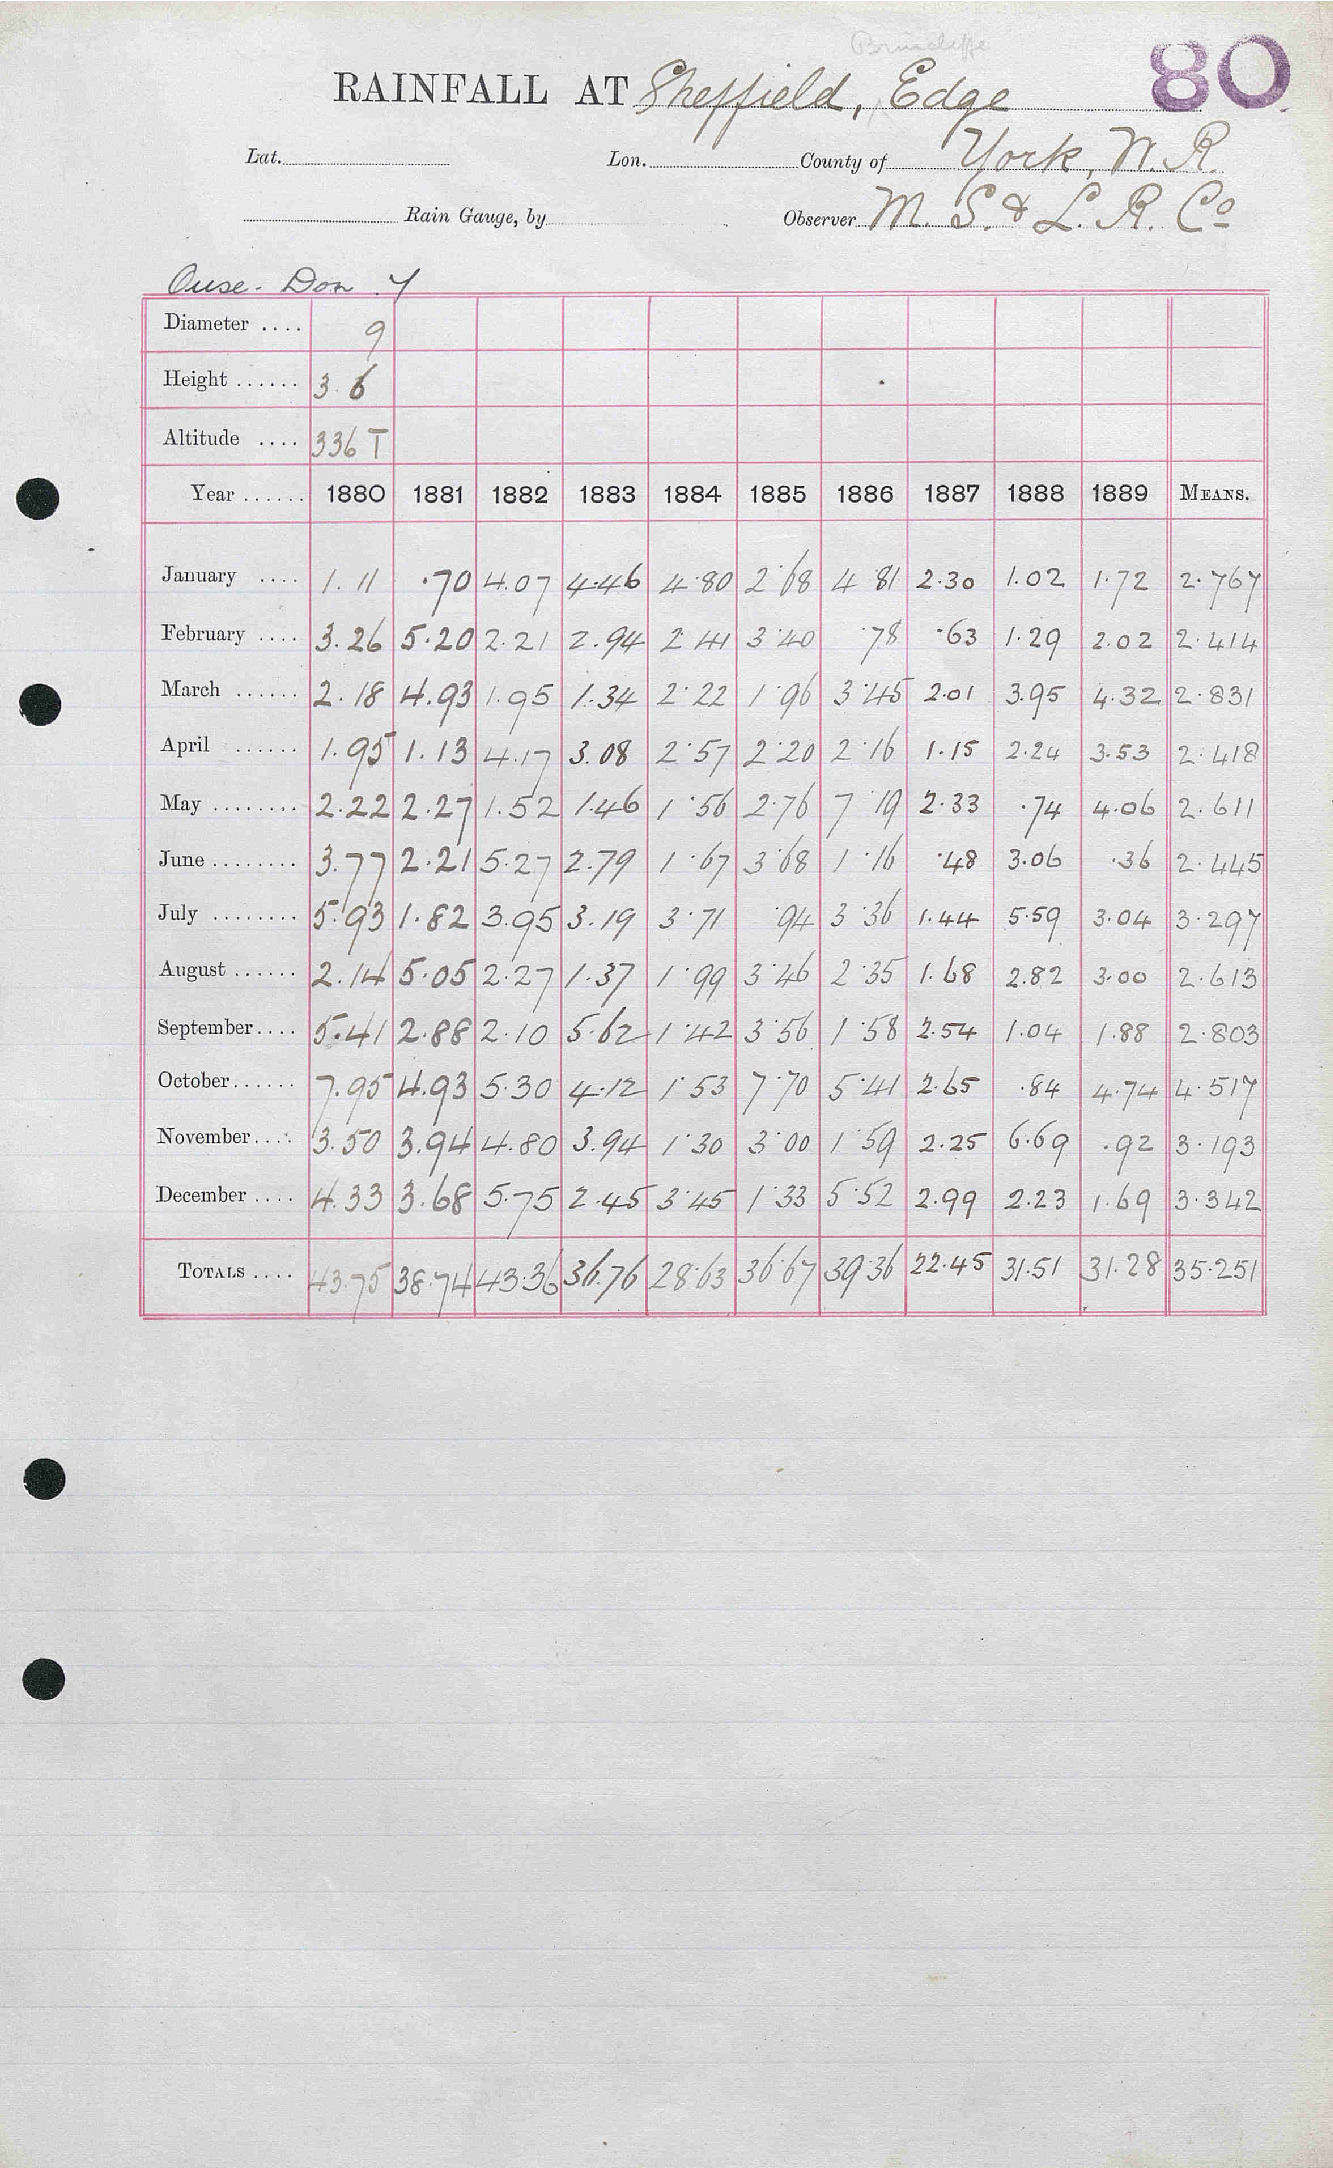 Brincliffe
80
RAINFALL AT Sheffield, Edge
Lat. Lon. County of York, W.R.
Rain Gauge, by Observer M. S. & L. R. Co
Ouse. Don
Diameter .... 9
Height ...... 3. 6
Altitude .... 336 T
Year ...... 1880 1881 1882 1883 1884 1885 1886 1887 1888 1889 MEANS.
January .... 1.11 .70 4.07 4.46 4.80 2.68 4.81 2.30 1.02 1.72 2.767
February .... 3.26 5.20 2.21 2.94 2.41 3.40 .78 .63 1.29 2.02 2.414
March ...... 2.18 4.93 1.95 1.34 2.22 1.96 3.45 2.01 3.95 4.32 2.831
April ...... 1.95 1.13 4.17 3.08 2.57 2.20 2.16 1.15 2.24 3.53 2.418
May ........ 2.22 2.27 1.52 1.46 1.56 2.76 7.19 2.33 .74 4.06 2.611
June ........ 3.77 2.21 5.27 2.79 1.67 3.68 1.16 .48 3.06 .36 2.445
July ........ 5.93 1.82 3.95 3.19 3.71 .94 3.36 1.44 5.59 3.04 3.297
August ...... 2.14 5.05 2.27 1.37 1.99 3.46 2.35 1.68 2.82 3.00 2.613
September.... 5.41 2.88 2.10 5.62 1.42 3.56 1.58 2.54 1.04 1.88 2.803
October...... 7.95 4.93 5.30 4.12 1.53 7.70 5.41 2.65 .84 4.74 4.517
November.... 3.50 3.94 4.80 3.94 1.30 3.00 1.59 2.25 6.69 .92 3.193
December .... 4.33 3.68 5.75 2.45 3.45 1.33 5.52 2.99 2.23 1.69 3.342
TOTALS .... 43.75 38.74 43.36 36.76 28.63 36.67 39.36 22.45 31.51 31.28 35.251